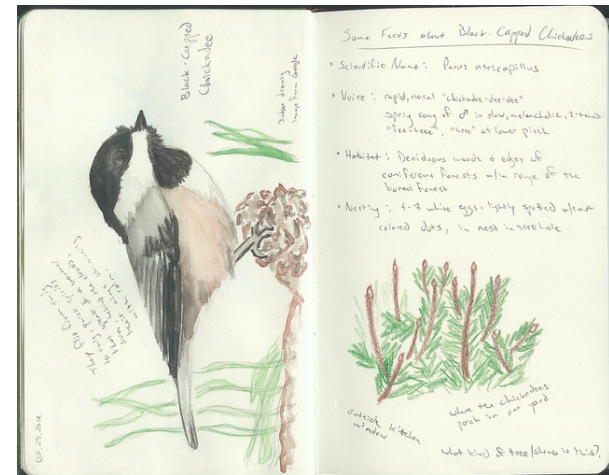 Black-Capped
Chickadee
image from Google
02.29.2012
Some Facts about Black-Capped Chickadees
• Scientific Name: Parus atricapillus
• Voice: rapid, nasal "chickadee-dee-dee"
spring song of ♂ is slow, melancholic, 2-toned
"fee-beee", "beee" at lower pitch
• Habitat: Deciduous woods & edges of
coniferous forests w/in range of the
boreal forest
• Nesting: 4-7 white eggs, lightly spotted w/rust
colored dots, in nest in tree hole
outside kitchen
window
where the chickadees
perch in our yard
what kind of tree/shrub is this?